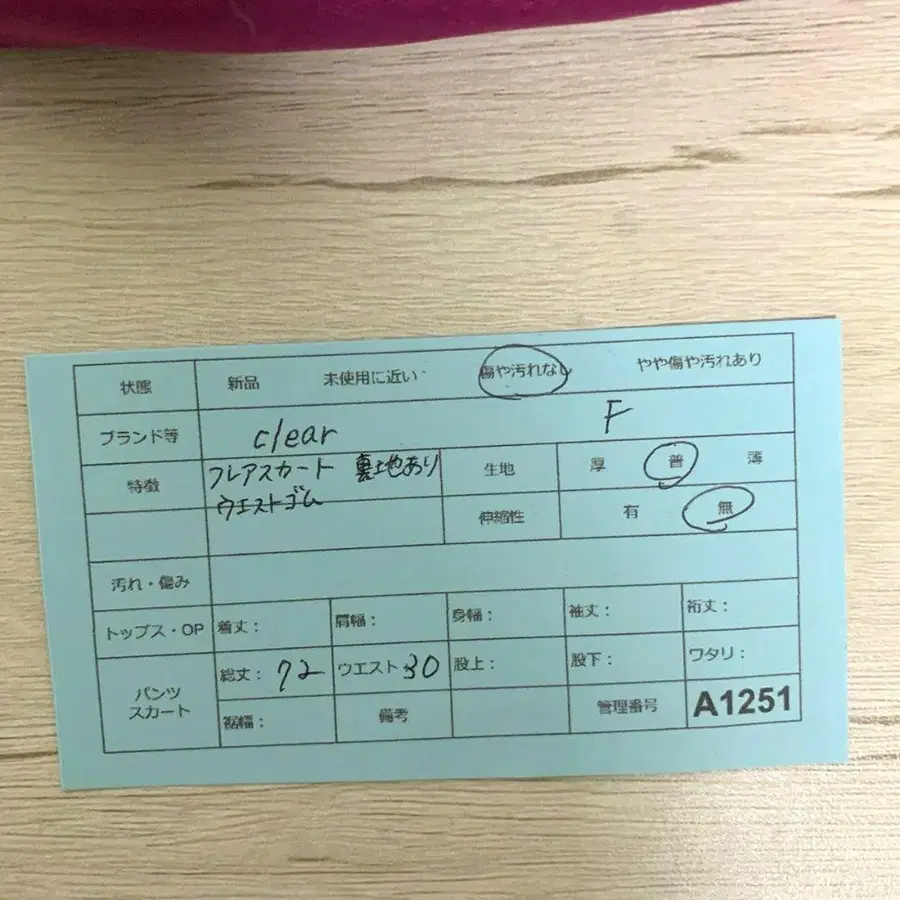 状態 新品 未使用に近い 傷や汚れなし やや傷や汚れあり
ブランド等 clear F
特徴 フレアスカート 裏地あり 生地 厚 普 薄
ウエストゴム 伸縮性 有 無
汚れ・傷み
トップス・OP 着丈: 肩幅: 身幅: 袖丈: 裄丈:
パンツ スカート 総丈: 72 ウエスト 30 股上: 股下: ワタリ:
裾幅: 備考 管理番号 A1251